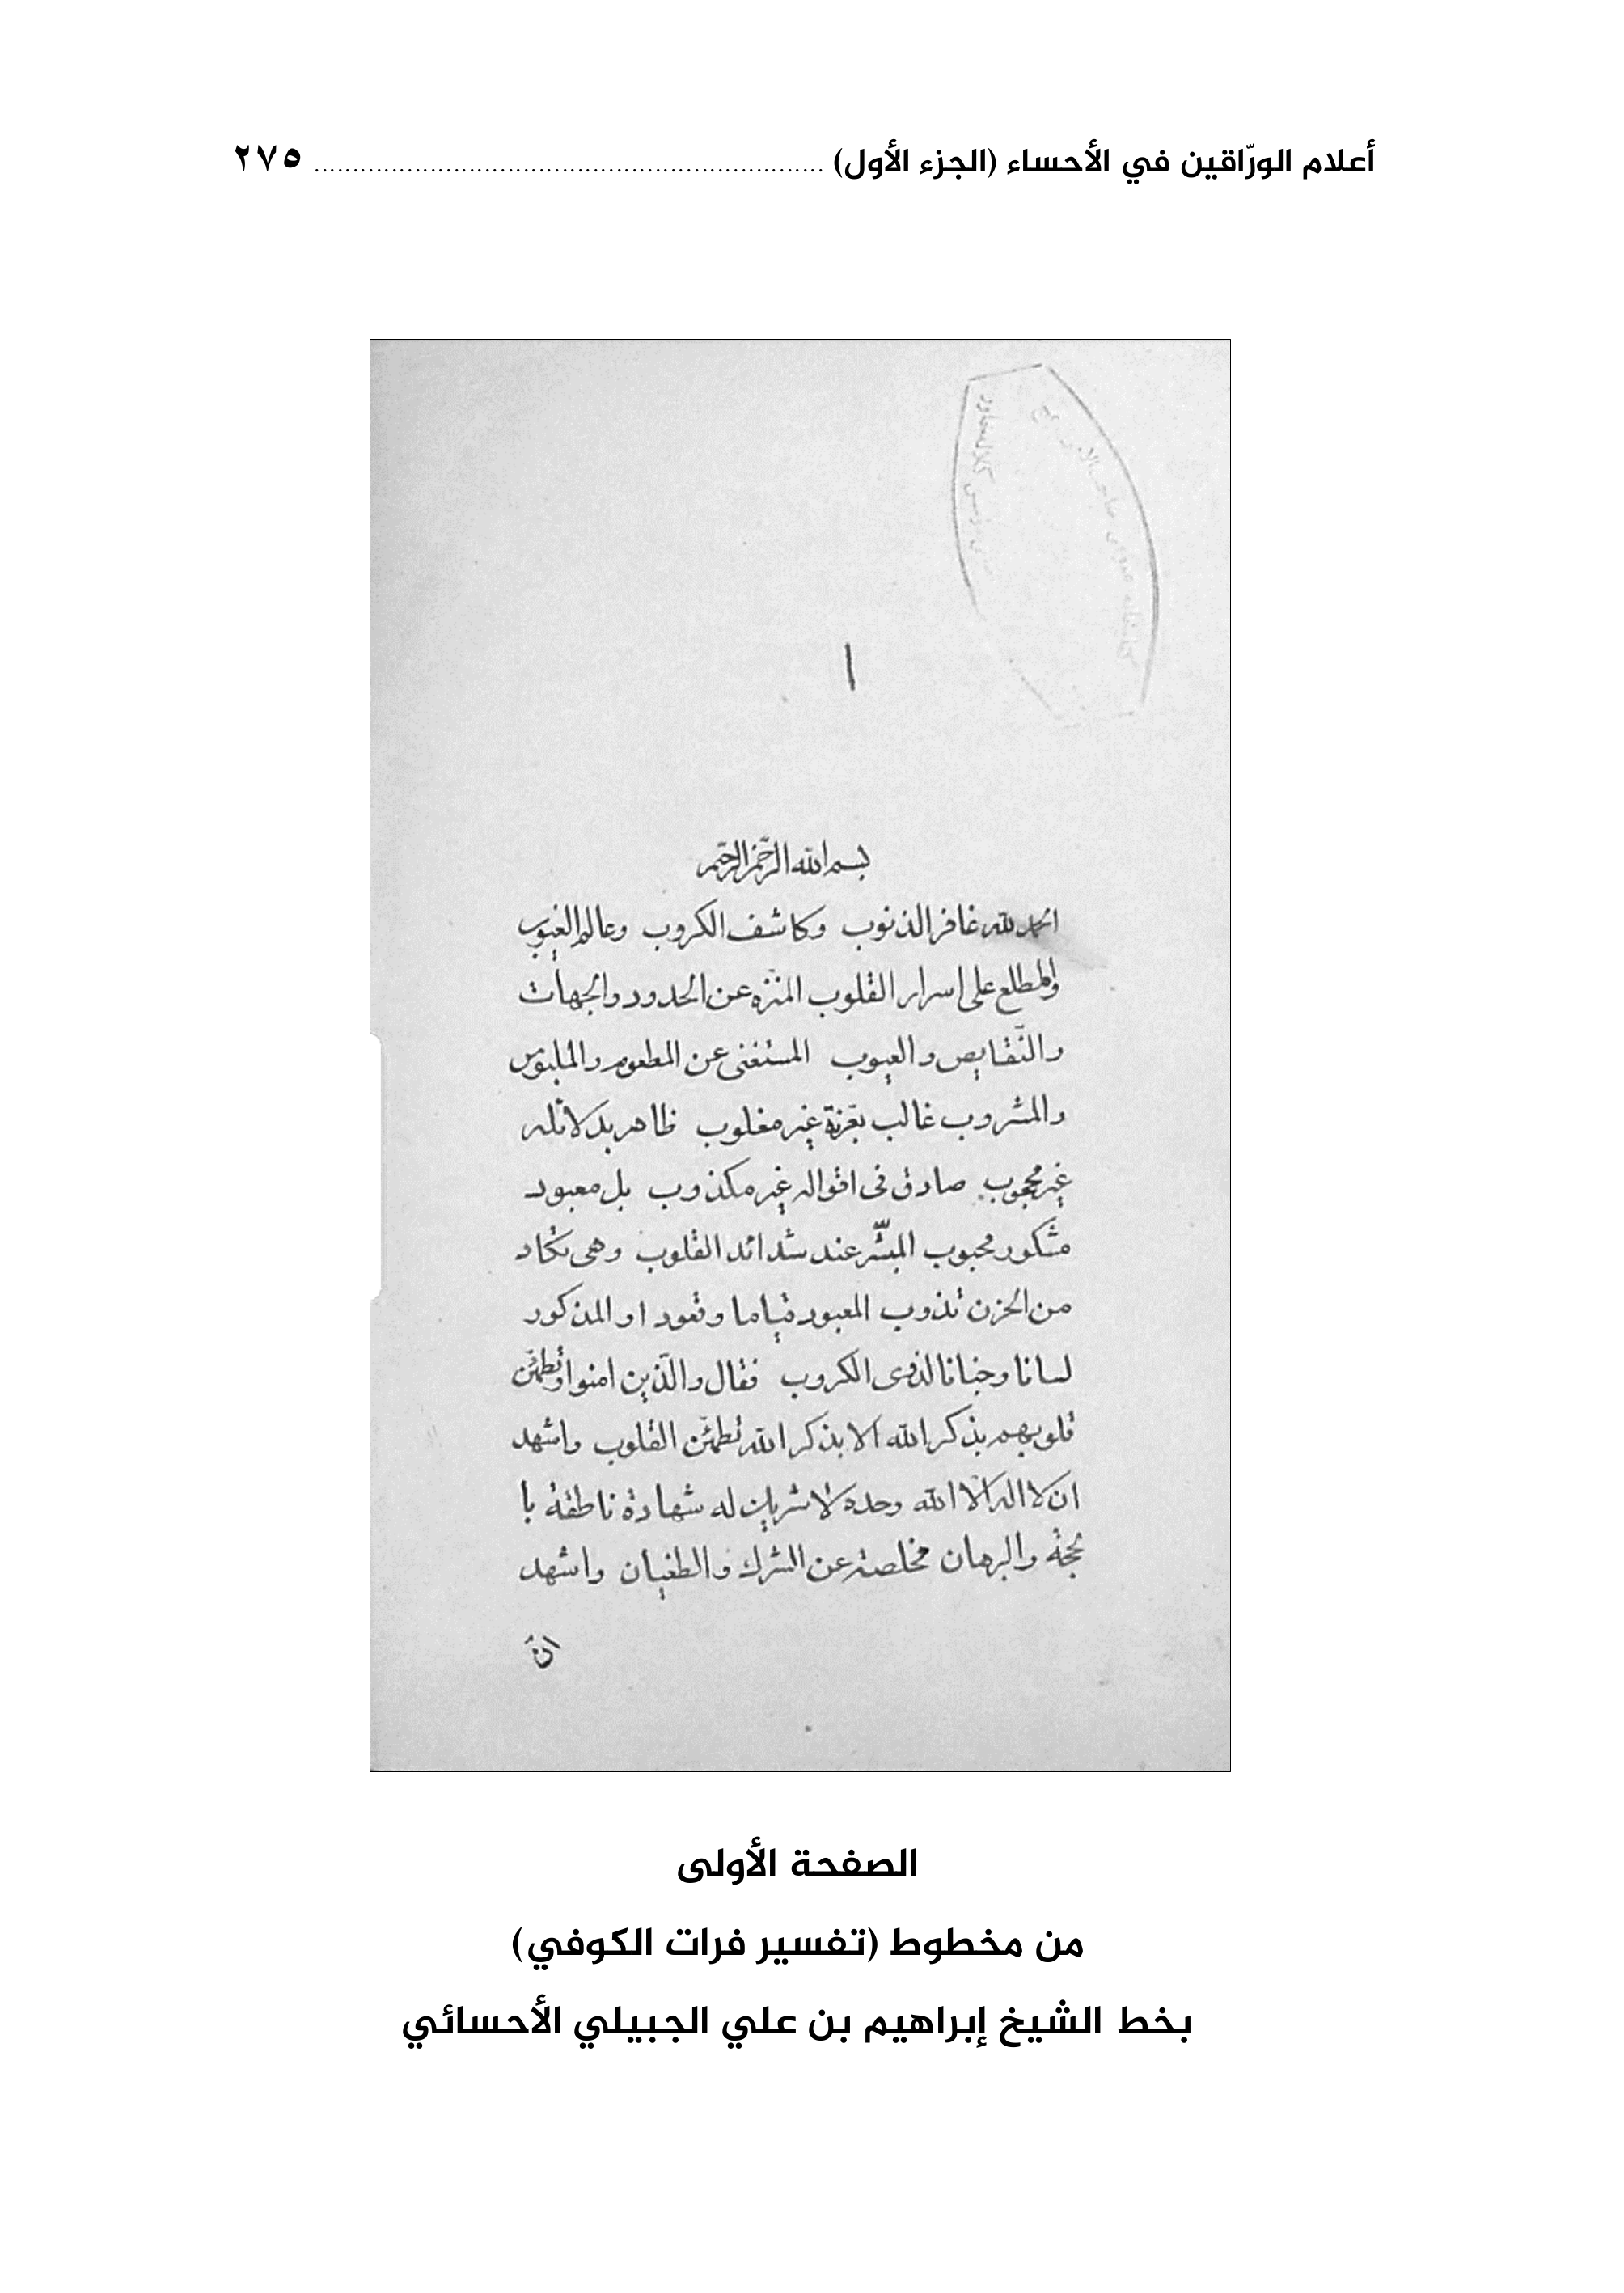 أعلام الورّاقين في الأحساء (الجزء الأول) ................................................................ ٢٧٥
١
بسم الله الرّحمن الرّحيم
الحمد لله غافر الذنوب وكاشف الكروب وعالم الغيوب
والمطلع على اسرار القلوب المنزّه عن الحدود والجهات
والنّقايص والعيوب المستغنى عن المطعوم والملبوس
والمشروب غالب بعزّته غير مغلوب ظاهر بدلائله
غير محجوب صادق فى اقواله غير مكذوب بل معبود
مشكور محبوب المبشّر عند شدائد القلوب وهى تكاد
من الحزن تذوب المعبود قياما وقعودا والمذكور
لسانا وجنانا لذوى الكروب فقال والّذين امنوا وتطمئن
قلوبهم بذكر الله الا بذكر الله تطمئن القلوب واشهد
ان لا اله الا الله وحده لا شريك له شهادة ناطقة با
لحجة والبرهان مخلصة عن الشرك والطغيان واشهد
انّ
الصفحة الأولى
من مخطوط (تفسير فرات الكوفي)
بخط الشيخ إبراهيم بن علي الجبيلي الأحسائي